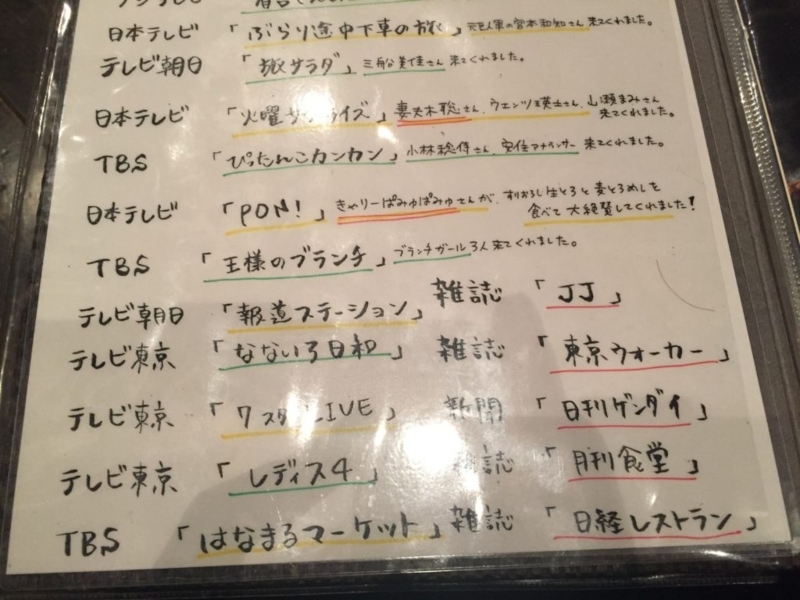 日本テレビ 「ぶらり途中下車の旅」 元巨人軍の宮本和知さん 来てくれました。
テレビ朝日 「旅サラダ」 三船美佳さん 来てくれました。
日本テレビ 「火曜サプライズ」 妻夫木聡さん、ウエンツ瑛士さん、山瀬まみさん
来てくれました。
TBS 「ぴったんこカンカン」 小林稔侍さん、安住アナウンサー 来てくれました。
日本テレビ 「PON!」 きゃりーぱみゅぱみゅさんが、すりおろし生とろと麦とろめしを
食べて大絶賛してくれました!
TBS 「王様のブランチ」 ブランチガール3人来てくれました。
テレビ朝日 「報道ステーション」 雑誌 「JJ」
テレビ東京 「なないろ日和」 雑誌 「東京ウォーカー」
テレビ東京 「7スタLIVE」 新聞 「日刊ゲンダイ」
テレビ東京 「レディス4」 雑誌 「月刊食堂」
TBS 「はなまるマーケット」 雑誌 「日経レストラン」